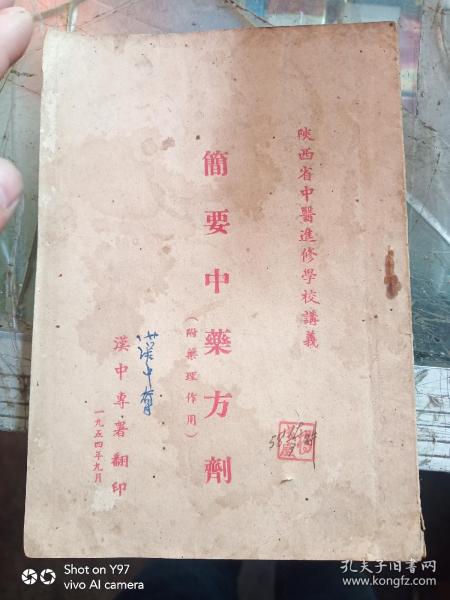 陝西省中醫進修學校講義
簡要中藥方劑
(附藥理作用)
漢中專署翻印
一九五四年九月
Shot on Y97
vivo AI camera
孔夫子旧书网
www.kongfz.com